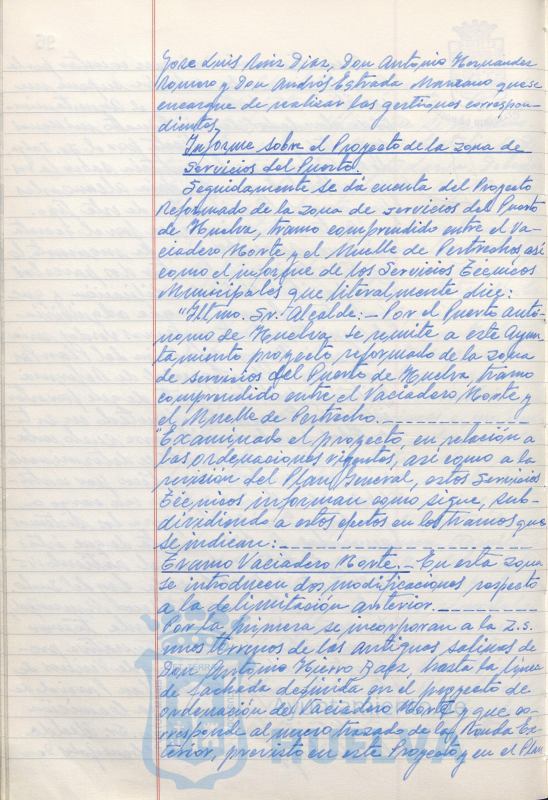 José Luis Ruiz Diaz, Don Antonio Hernández
Romero y Don Andrés Estrada Manzano que se
encargue de realizar las gestiones correspon-
dientes.
Informe sobre el Proyecto de la zona de
Servicios del Puerto.
Seguidamente se dá cuenta del Proyecto
Reformado de la zona de servicios del Puerto
de Huelva, tramo comprendido entre el Va-
ciadero Norte y el Muelle de Pertrechos así
como el informe de los Servicios Técnicos
Municipales que literalmente dice:
"Iltmo. Sr. Alcalde: - Por el Puerto autó-
nomo de Huelva se remite a este Ayun-
tamiento proyecto reformado de la zona
de servicios del Puerto de Huelva, tramo
comprendido entre el Vaciadero Norte y
el Muelle de Pertrecho.
"Examinado el proyecto en relación a
las ordenaciones vigentes, así como a la
revisión del Plan General, estos Servicios
Técnicos informan como sigue, sub-
dividiendo a estos efectos en los tramos que
se indican:
Tramo Vaciadero Norte. - En esta zona
se introducen dos modificaciones respecto
a la delimitación anterior.
Por la primera se incorporan a la Z.S.
unos terrenos de las antiguas salinas de
Don Antonio Hierro Baez, hasta la línea
de fachada definida en el proyecto de
ordenación de Vaciadero Norte y que co-
rresponde al nuevo trazado de la Ronda Ex-
terior, previsto en este Proyecto y en el Plan